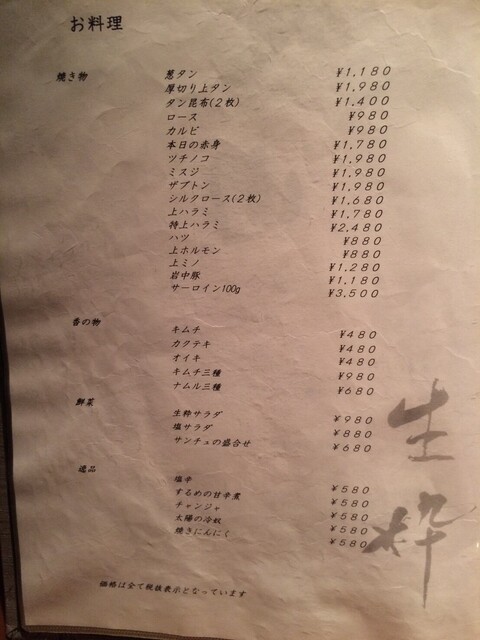 お料理
焼き物
葱タン ¥1,180
厚切り上タン ¥1,980
タン昆布(2枚) ¥1,400
ロース ¥980
カルビ ¥980
本日の赤身 ¥1,780
ツチノコ ¥1,980
ミスジ ¥1,980
ザブトン ¥1,980
シルクロース(2枚) ¥1,680
上ハラミ ¥1,780
特上ハラミ ¥2,480
ハツ ¥880
上ホルモン ¥880
上ミノ ¥1,280
岩中豚 ¥1,180
サーロイン100g ¥3,500
香の物
キムチ ¥480
カクテキ ¥480
オイキ ¥480
キムチ三種 ¥980
ナムル三種 ¥680
鮮菜
生粋サラダ ¥980
塩サラダ ¥880
サンチュの盛合せ ¥680
逸品
塩辛 ¥580
するめの甘辛煮 ¥580
チャンジャ ¥580
太陽の冷奴 ¥580
焼きにんにく ¥580
生粋
価格は全て税抜表示となっています